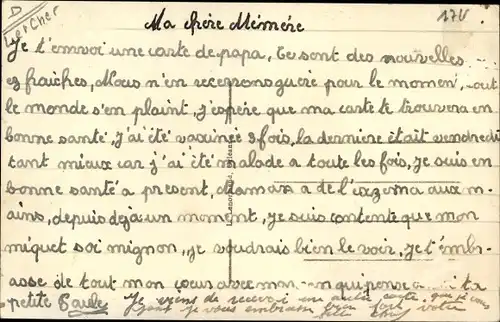 Ma chère Mémère
174
D
Ler Cher
Je t'envoi une carte de papa, Ce sont des nouvelles
fraiches, Nous n'en recevons guère pour le momen, tout
le monde s'en plaint, j'espère que ma carte te trouvera en
bonne santé, j'ai été vaccinée 3 fois, la dernière était vendredi
tant mieux car j'ai été malade a toute les fois, je suis en
bonne santé a present, maman a de l'exzema aux m-
ains, depuis deja un moment, je suis contente que mon
miquet soi mignon, je voudrais bien le voir, je t'embr-
asse de tout mon coeur avec maman qui pense a ta
petite Paule
Je viens de recevoir une autre carte, que je suis
dont je vous embrasse bien fort votre